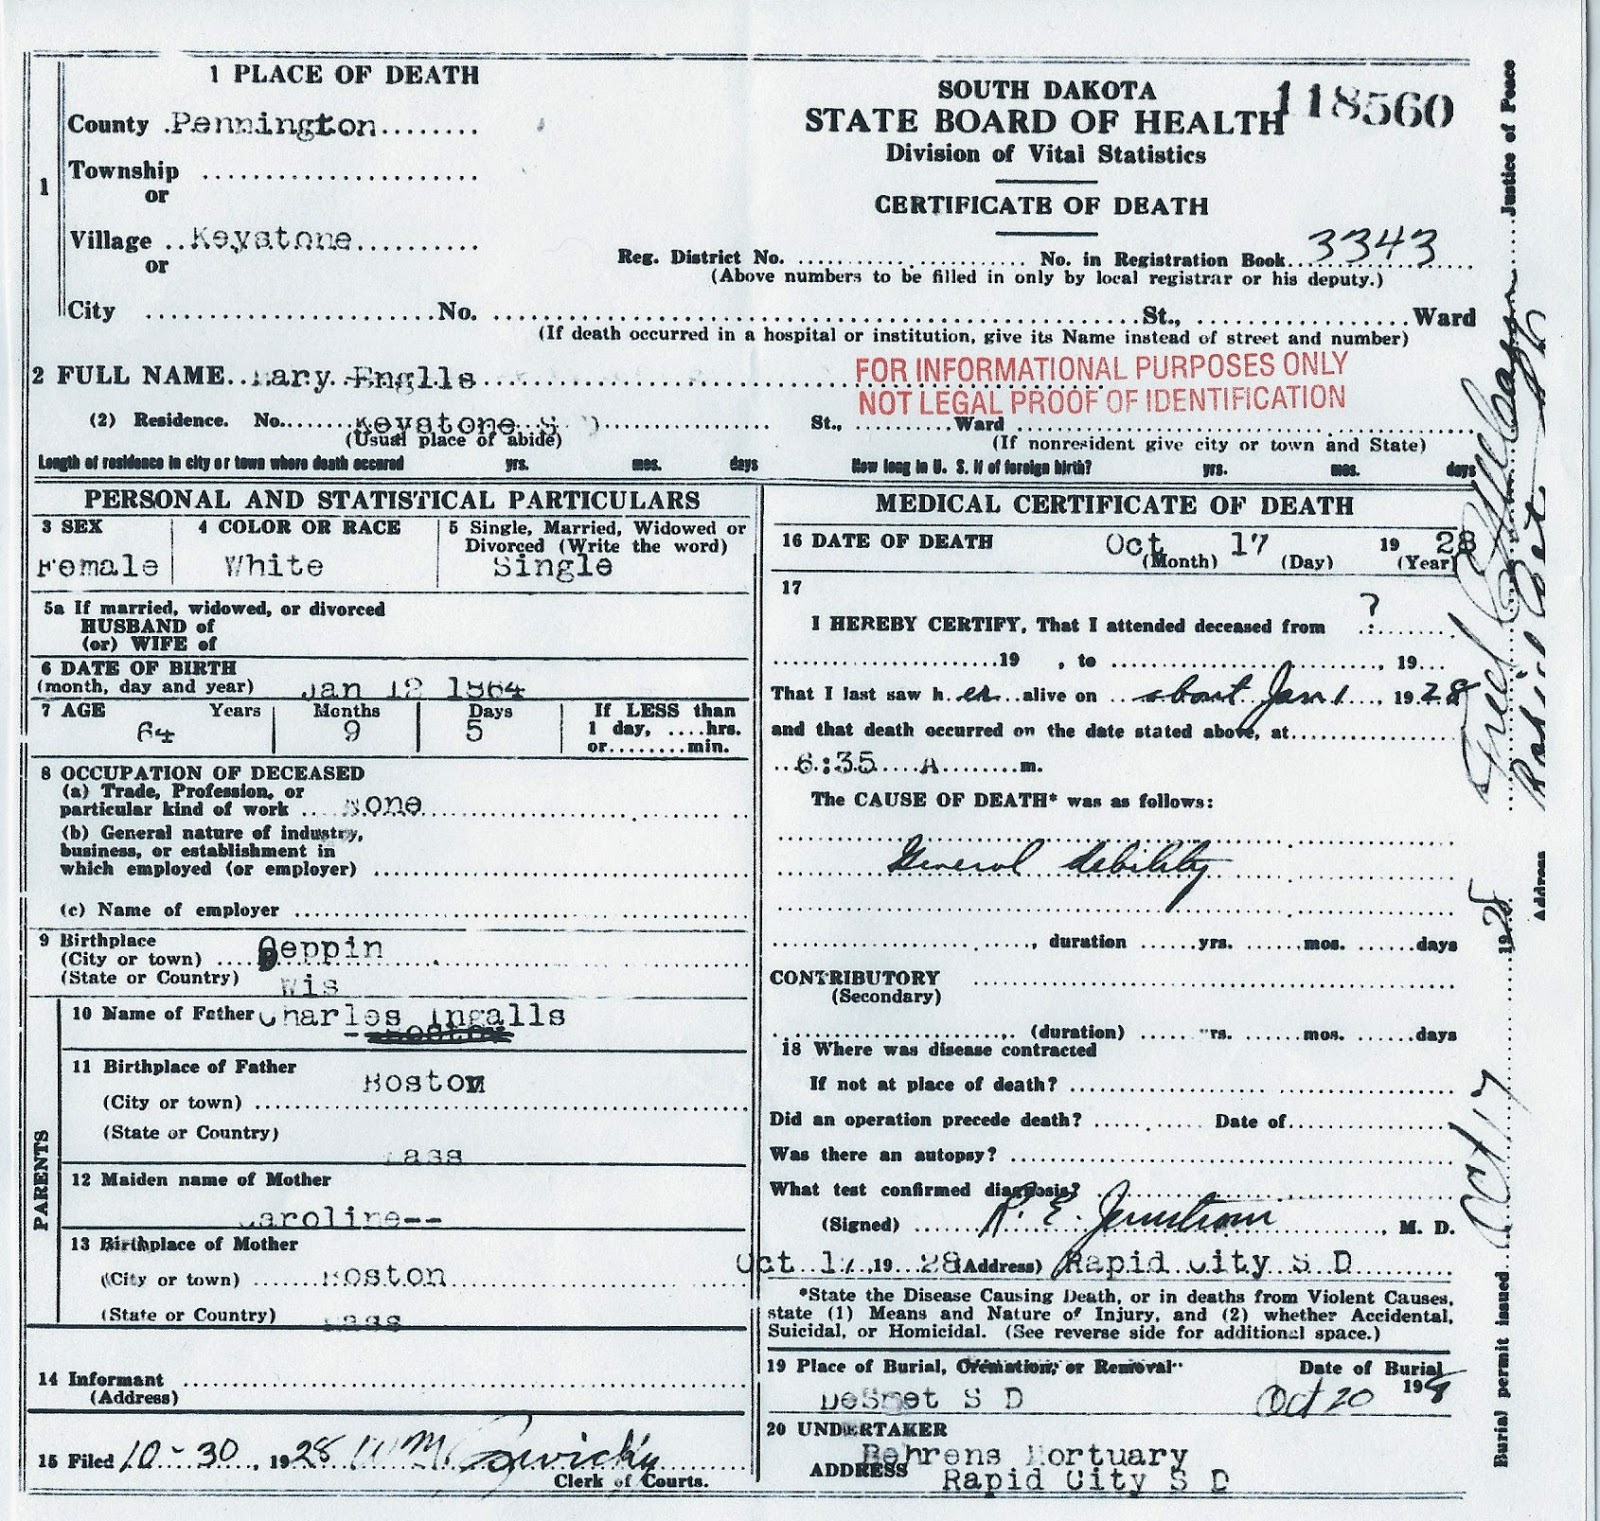 1 PLACE OF DEATH
County Pennington
Township
or
Village Keystone
or
City No. St., Ward
(If death occurred in a hospital or institution, give its Name instead of street and number)
SOUTH DAKOTA
STATE BOARD OF HEALTH 118560
Division of Vital Statistics
CERTIFICATE OF DEATH
Reg. District No. No. in Registration Book 3343
(Above numbers to be filled in only by local registrar or his deputy.)
1
2 FULL NAME Mary Englls
FOR INFORMATIONAL PURPOSES ONLY
NOT LEGAL PROOF OF IDENTIFICATION
(2) Residence. No. Keystone S D St., Ward
(Usual place of abide) (If nonresident give city or town and State)
Length of residence in city or town where death occured yrs. mos. days How long in U. S. if of foreign birth? yrs. mos. days
PERSONAL AND STATISTICAL PARTICULARS
3 SEX 4 COLOR OR RACE 5 Single, Married, Widowed or
Divorced (Write the word)
Female White Single
5a If married, widowed, or divorced
HUSBAND of
(or) WIFE of
6 DATE OF BIRTH
(month, day and year) Jan 12 1864
7 AGE Years Months Days If LESS than
64 9 5 1 day, hrs.
or min.
8 OCCUPATION OF DECEASED
(a) Trade, Profession, or
particular kind of work None
(b) General nature of industry,
business, or establishment in
which employed (or employer)
(c) Name of employer
9 Birthplace
(City or town) Peppin
(State or Country) Wis
PARENTS
10 Name of Father Charles Ingalls
11 Birthplace of Father
Boston
(City or town)
(State or Country)
Mass
12 Maiden name of Mother
Caroline--
13 Birthplace of Mother
(City or town) Boston
(State or Country) Mass
14 Informant
(Address)
15 Filed 10-30, 1928 W M
Clerk of Courts.
MEDICAL CERTIFICATE OF DEATH
16 DATE OF DEATH Oct 17 19 28
(Month) (Day) (Year)
17
I HEREBY CERTIFY, That I attended deceased from ?
19 , to , 19
That I last saw h er alive on about Jan 1, 1928
and that death occurred on the date stated above, at
6:35 A m.
The CAUSE OF DEATH* was as follows:
General debility
, duration yrs. mos. days
CONTRIBUTORY
(Secondary)
(duration) yrs. mos. days
18 Where was disease contracted
If not at place of death?
Did an operation precede death? Date of
Was there an autopsy?
What test confirmed diagnosis?
(Signed) R. E. , M. D.
Oct 17, 19 28 (Address) Rapid City S D
*State the Disease Causing Death, or in deaths from Violent Causes,
state (1) Means and Nature of Injury, and (2) whether Accidental,
Suicidal, or Homicidal. (See reverse side for additional space.)
19 Place of Burial, Cremation, or Removal Date of Burial
DeSmet S D Oct 20 1928
20 UNDERTAKER
Behrens Mortuary
ADDRESS Rapid City S D
Burial permit issued Oct 17 1928 Fred Justice of Peace
Address Rapid City